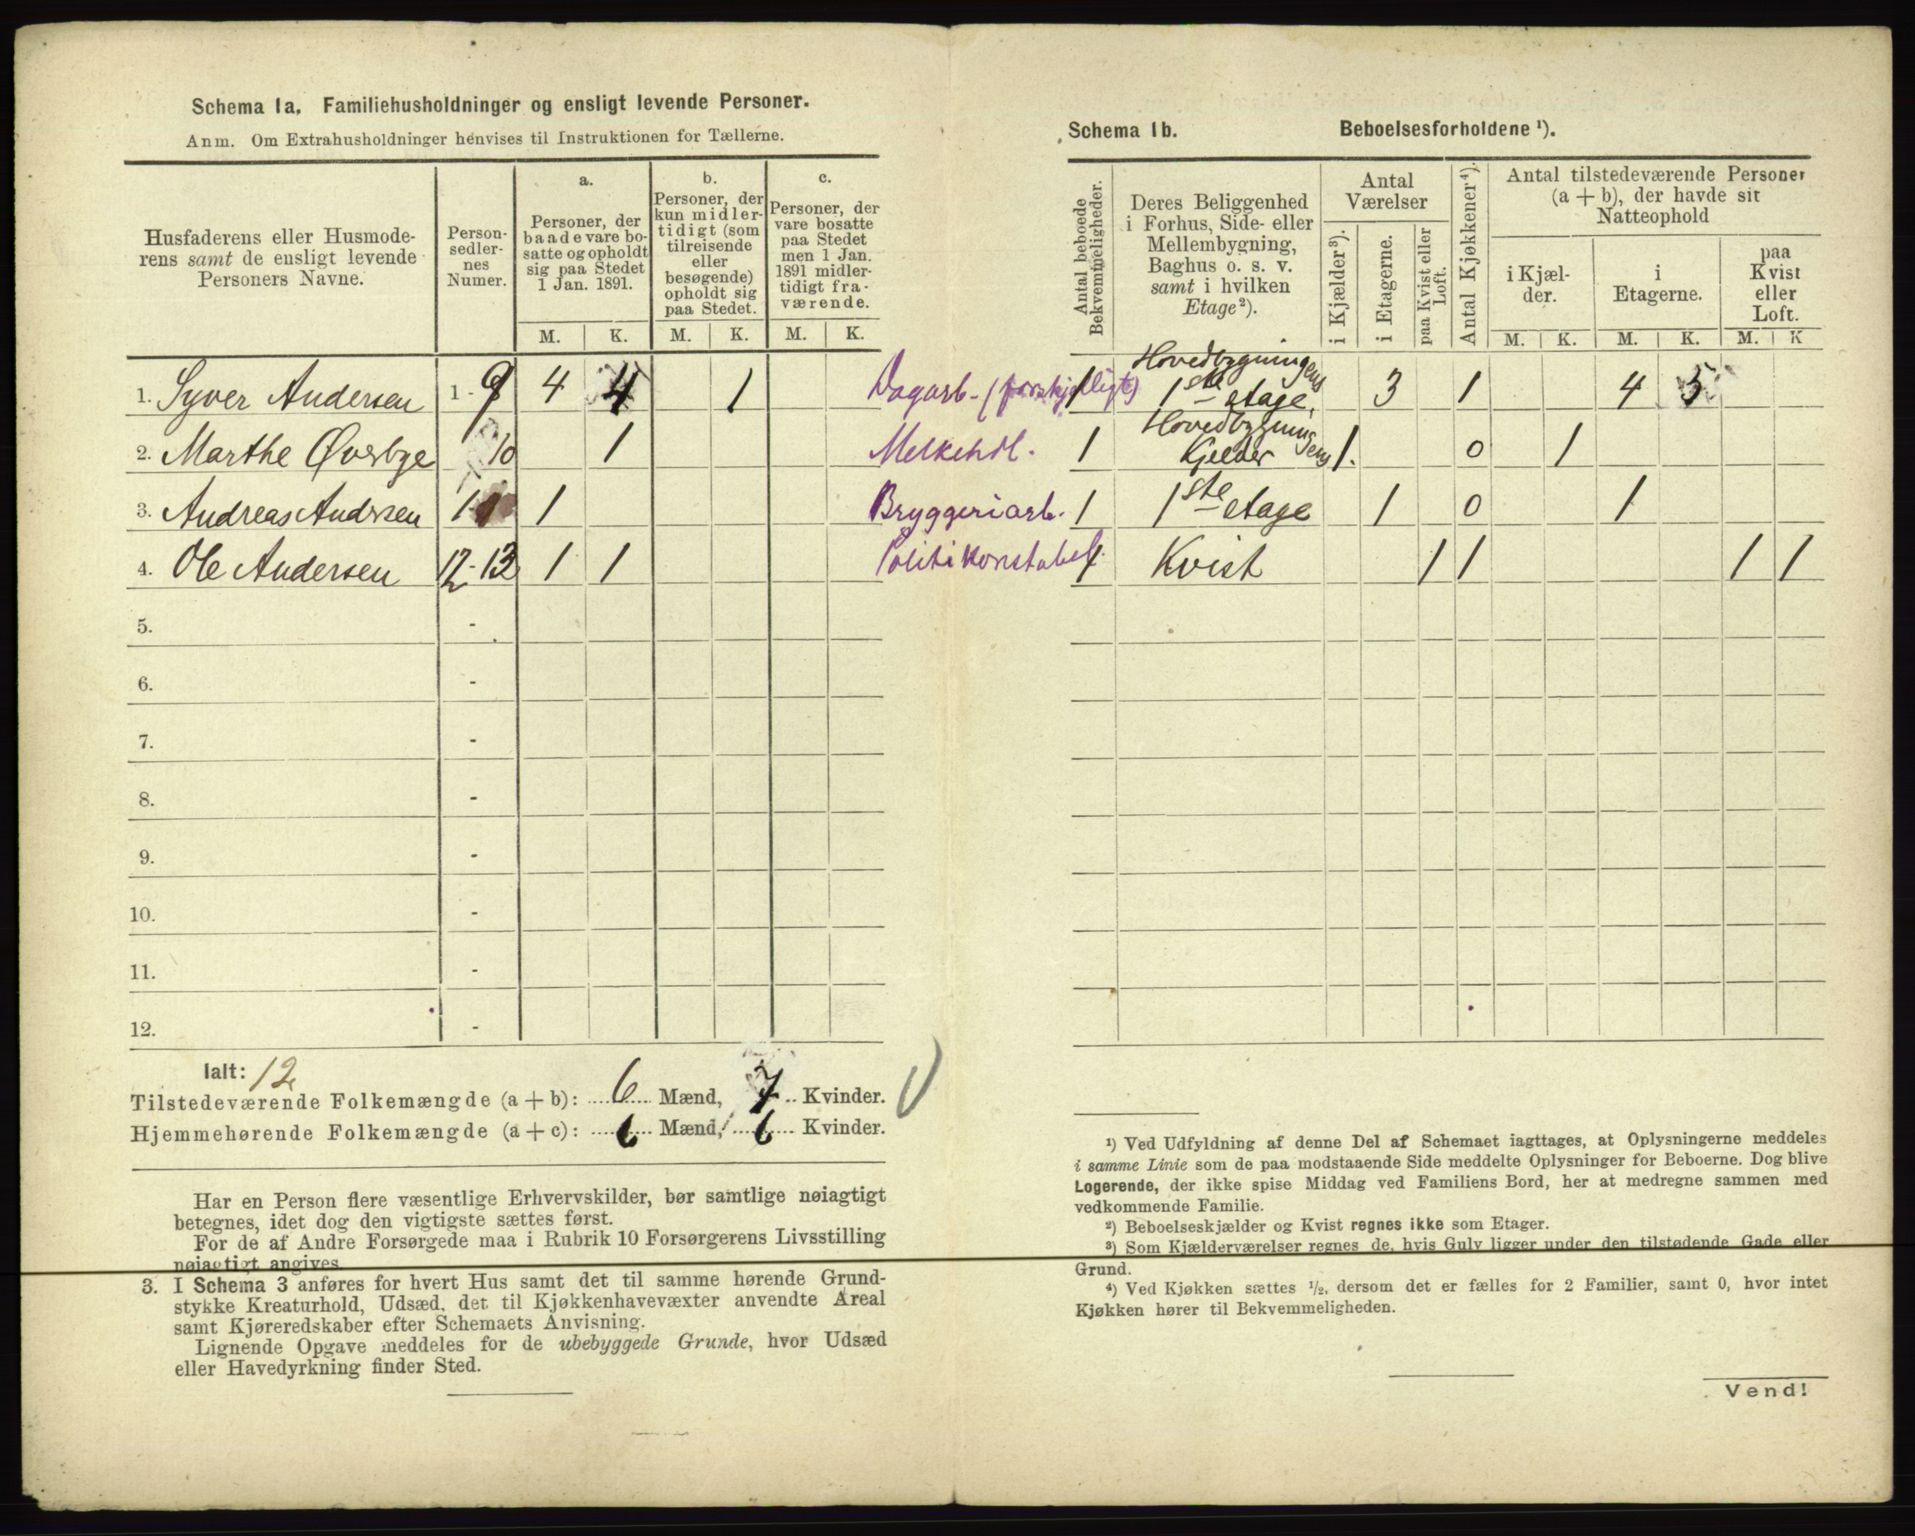 Schema 1a. Familiehusholdninger og ensligt levende Personer.
Anm. Om Extrahusholdninger henvises til Instruktionen for Tællerne.
Husfaderens eller Husmode-
rens samt de ensligt levende
Personers Navne.
Person-
sedler-
nes
Numer.
a.
Personer, der
baade vare bo-
satte og opholdt
sig paa Stedet
1 Jan. 1891.
b.
Personer, der
kun midler-
tidigt (som
tilreisende
eller
besøgende)
opholdt sig
paa Stedet.
c.
Personer, der
vare bosatte
paa Stedet
men 1 Jan.
1891 midler-
tidigt fra-
værende.
M. K. M. K. M. K.
1. Syver Andersen 1-9 4 4 1 Dagarb. (forskjelligt)
2. Marthe Øverbye 10 1 Melkehdl.
3. Andreas Andersen 11 1 Bryggeriarb.
4. Ole Andersen 12-13 1 1 Politikonstabel.
5. -
6. -
7. -
8. -
9. -
10. -
11. -
12. -
Ialt: 12
Tilstedeværende Folkemængde (a + b): 6 Mænd, 7 Kvinder.
Hjemmehørende Folkemængde (a + c): 6 Mænd, 6 Kvinder.
Har en Person flere væsentlige Erhvervskilder, bør samtlige nøiagtigt
betegnes, idet dog den vigtigste sættes først.
For de af Andre Forsørgede maa i Rubrik 10 Forsørgerens Livsstilling
nøiagtigt angives.
3. I Schema 3 anføres for hvert Hus samt det til samme hørende Grund-
stykke Kreaturhold, Udsæd, det til Kjøkkenhavevæxter anvendte Areal
samt Kjøreredskaber efter Schemaets Anvisning.
Lignende Opgave meddeles for de ubebyggede Grunde, hvor Udsæd
eller Havedyrkning finder Sted.
Schema 1b. Beboelsesforholdene ¹).
Antal beboede
Bekvemmeligheder.
Deres Beliggenhed
i Forhus, Side- eller
Mellembygning,
Baghus o. s. v.
samt i hvilken
Etage ²).
Antal
Værelser
i Kjælder ³).
i Etagerne.
paa Kvist eller
Loft.
Antal Kjøkkener ⁴).
Antal tilstedeværende Personer
(a + b), der havde sit
Natteophold
i Kjæl-
der.
i
Etagerne.
paa
Kvist
eller
Loft.
M. K. M. K. M. K
1 Hovedbygningens 1ste etage, 3 1 4 5
1 Hovedbygningens Kjelder 1. 0 1
1 1ste etage 1 0 1
1 Kvist 1 1 1 1
¹) Ved Udfyldning af denne Del af Schemaet iagttages, at Oplysningerne meddeles
i samme Linie som de paa modstaaende Side meddelte Oplysninger for Beboerne. Dog blive
Logerende, der ikke spise Middag ved Familiens Bord, her at medregne sammen med
vedkommende Familie.
²) Beboelseskjælder og Kvist regnes ikke som Etager.
³) Som Kjælderværelser regnes de, hvis Gulv ligger under den tilstødende Gade eller
Grund.
⁴) Ved Kjøkken sættes ½, dersom det er fælles for 2 Familier, samt 0, hvor intet
Kjøkken hører til Bekvemmeligheden.
Vend!